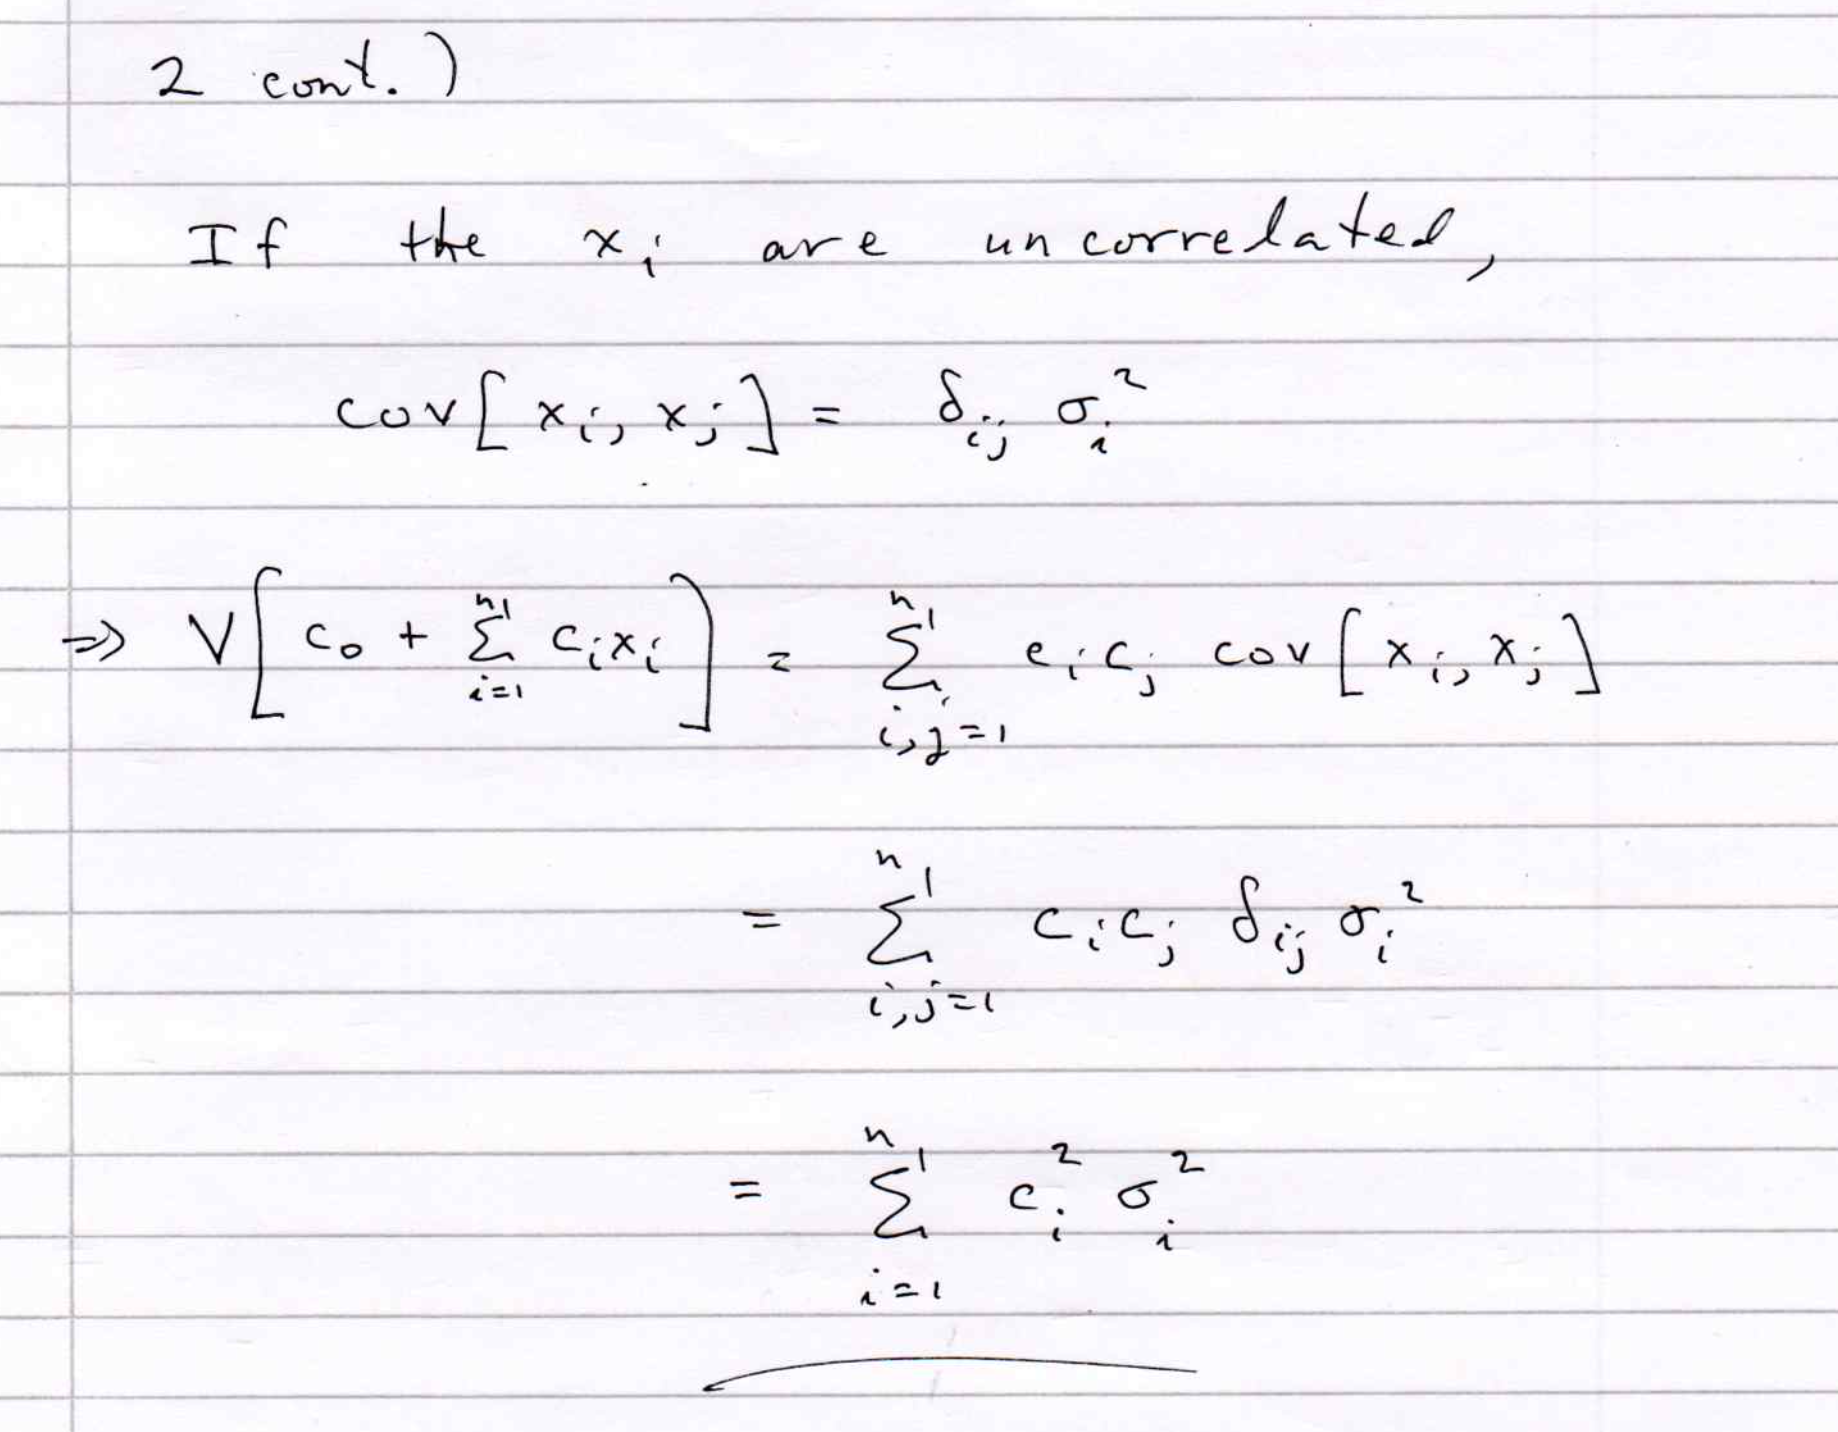 2 cont.)
If the xᵢ are uncorrelated,
cov[xᵢ, xⱼ] = δᵢⱼ σᵢ²
⇒ V[c₀ + ∑ᵢ₌₁ⁿ cᵢxᵢ] = ∑ᵢ,ⱼ₌₁ⁿ cᵢcⱼ cov[xᵢ, xⱼ]
= ∑ᵢ,ⱼ₌₁ⁿ cᵢcⱼ δᵢⱼ σᵢ²
= ∑ᵢ₌₁ⁿ cᵢ² σᵢ²